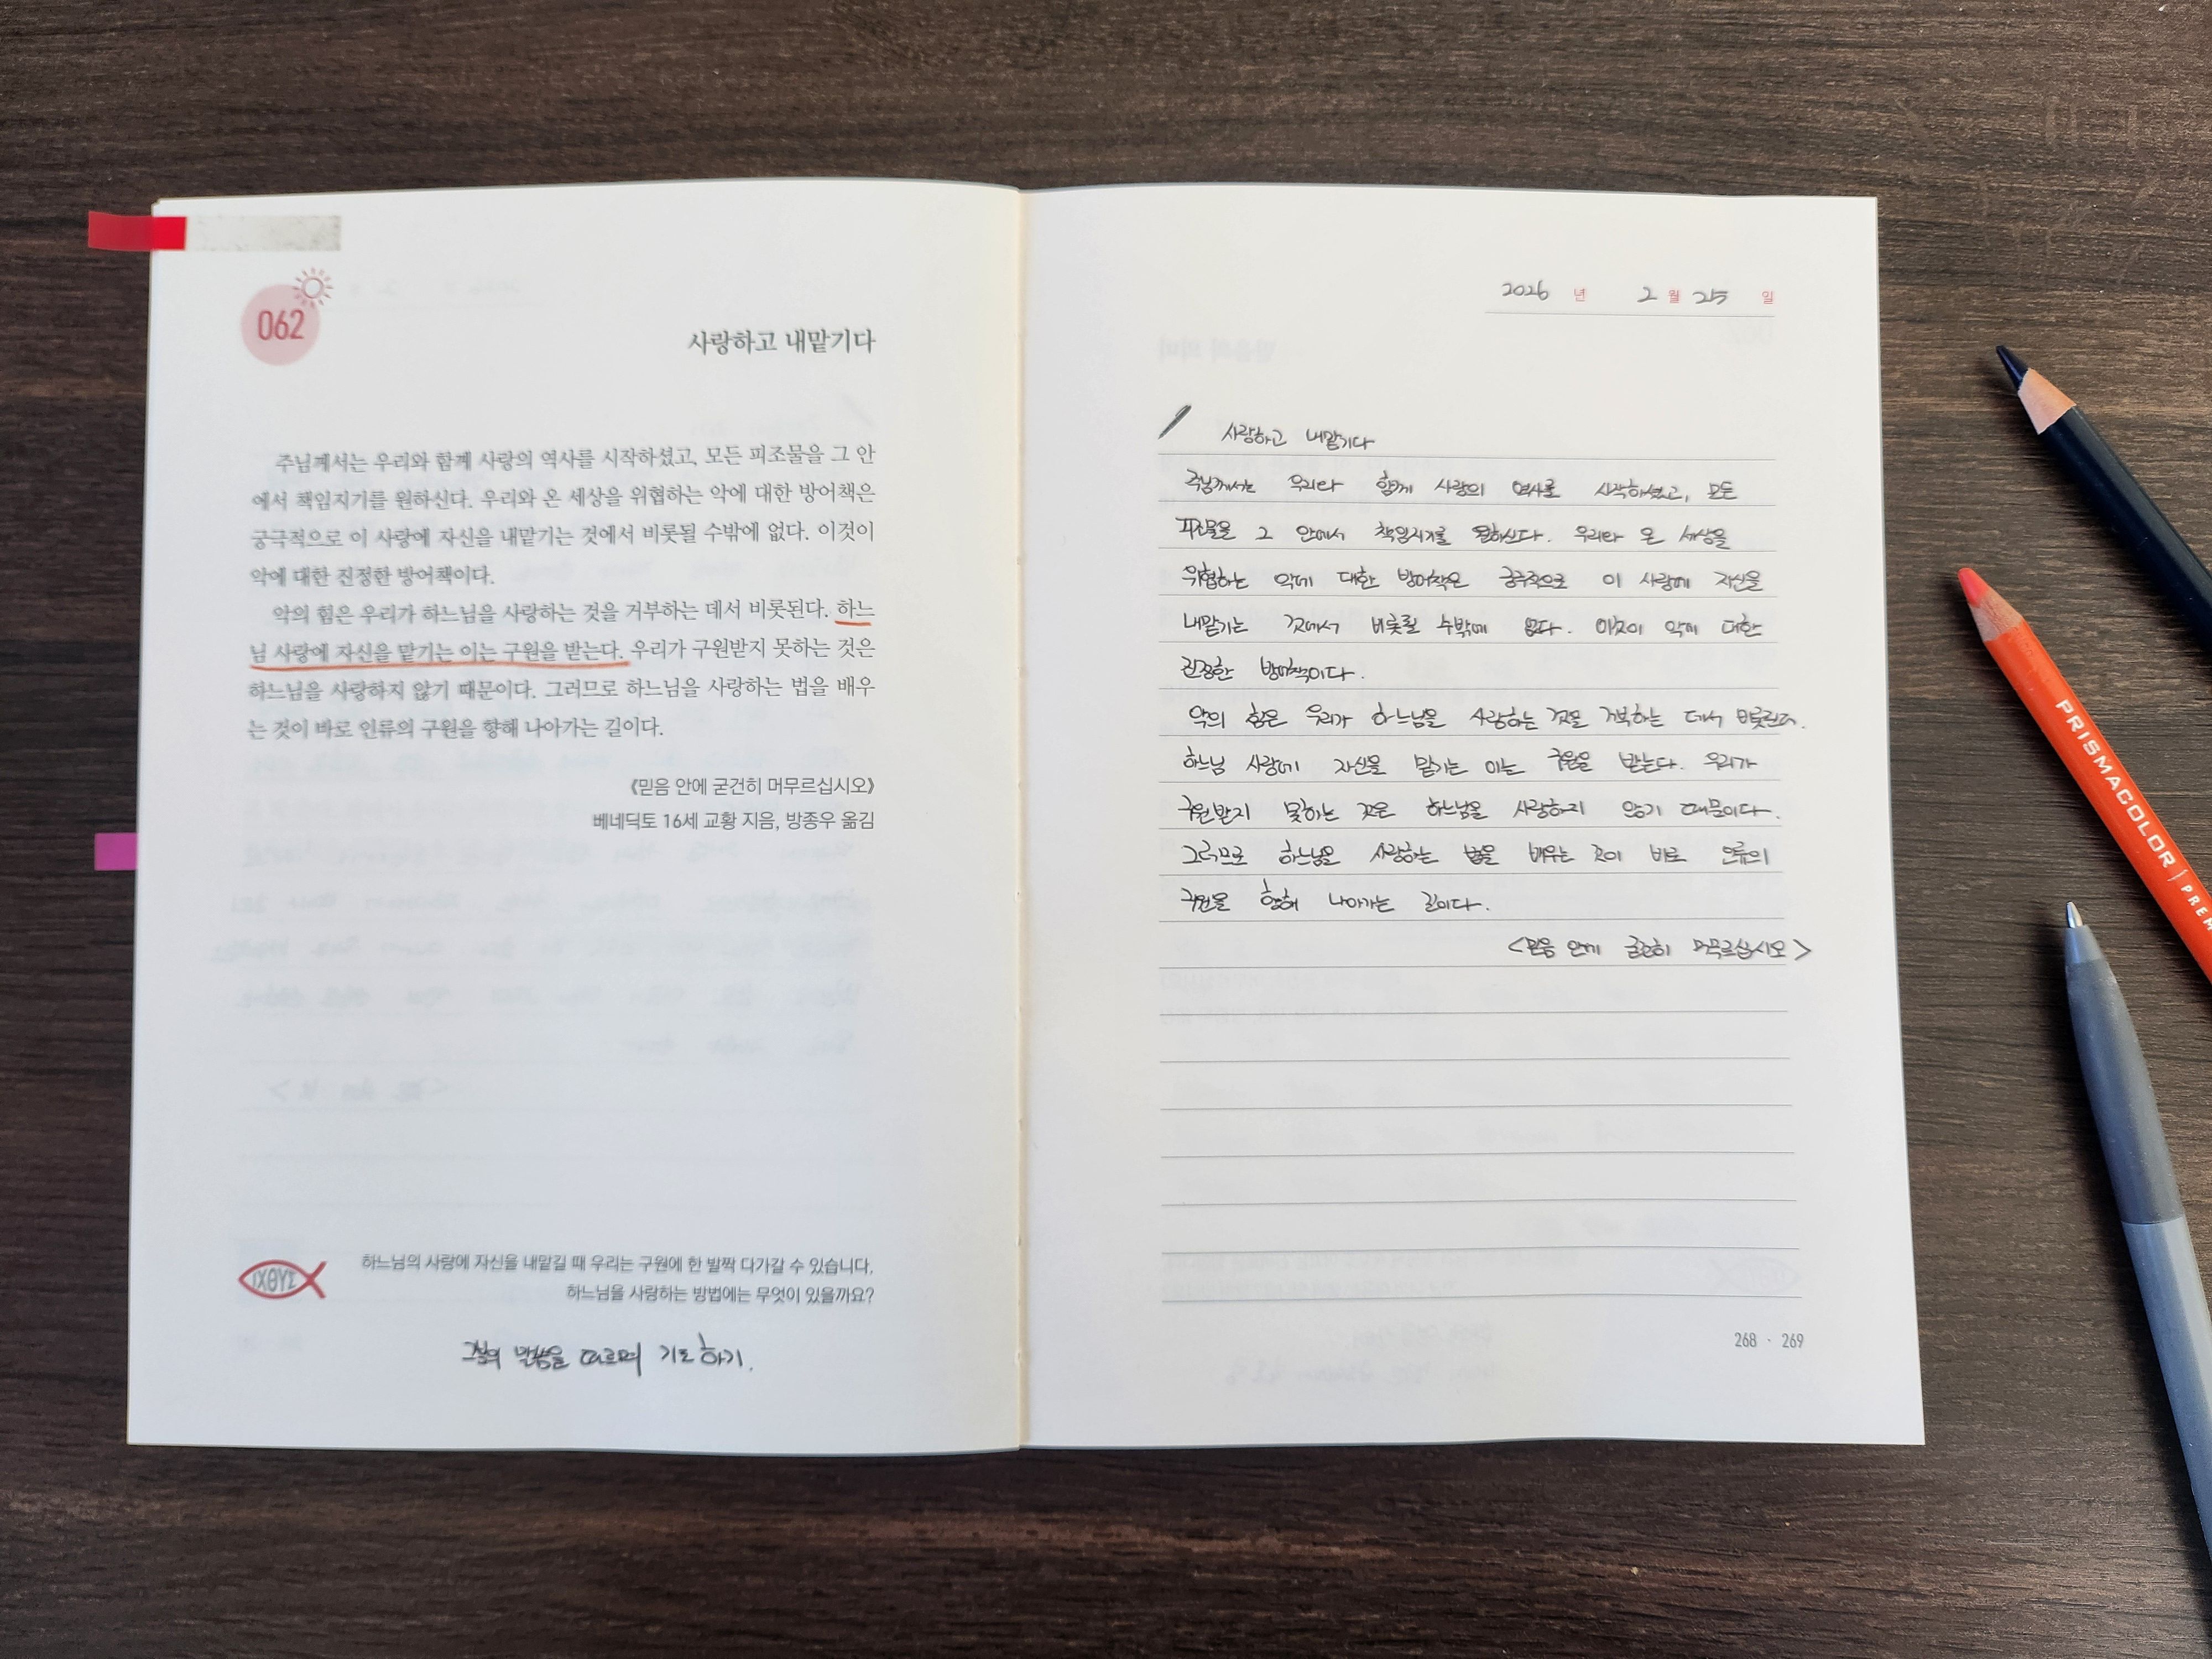 062
사랑하고 내맡기다
주님께서는 우리와 함께 사랑의 역사를 시작하셨고, 모든 피조물을 그 안
에서 책임지기를 원하신다. 우리와 온 세상을 위협하는 악에 대한 방어책은
궁극적으로 이 사랑에 자신을 내맡기는 것에서 비롯될 수밖에 없다. 이것이
악에 대한 진정한 방어책이다.
악의 힘은 우리가 하느님을 사랑하는 것을 거부하는 데서 비롯된다. 하느
님 사랑에 자신을 맡기는 이는 구원을 받는다. 우리가 구원받지 못하는 것은
하느님을 사랑하지 않기 때문이다. 그러므로 하느님을 사랑하는 법을 배우
는 것이 바로 인류의 구원을 향해 나아가는 길이다.
《믿음 안에 굳건히 머무르십시오》
베네딕토 16세 교황 지음, 방종우 옮김
ΙΧΘΥΣ
하느님의 사랑에 자신을 내맡길 때 우리는 구원에 한 발짝 다가갈 수 있습니다.
하느님을 사랑하는 방법에는 무엇이 있을까요?
말씀을 따르며 기도하기.
2026 년 2 월 25 일
사랑하고 내맡기다
주님께서는 우리와 함께 사랑의 역사를 시작하셨고, 모든
피조물을 그 안에서 책임지기를 원하신다. 우리와 온 세상을
위협하는 악에 대한 방어책은 궁극적으로 이 사랑에 자신을
내맡기는 것에서 비롯될 수밖에 없다. 이것이 악에 대한
진정한 방어책이다.
악의 힘은 우리가 하느님을 사랑하는 것을 거부하는 데서 비롯된다.
하느님 사랑에 자신을 맡기는 이는 구원을 받는다. 우리가
구원받지 못하는 것은 하느님을 사랑하지 않기 때문이다.
그러므로 하느님을 사랑하는 법을 배우는 것이 바로 인류의
구원을 향해 나아가는 길이다.
<믿음 안에 굳건히 머무르십시오>
268 · 269
PRISMACOLOR | PREM